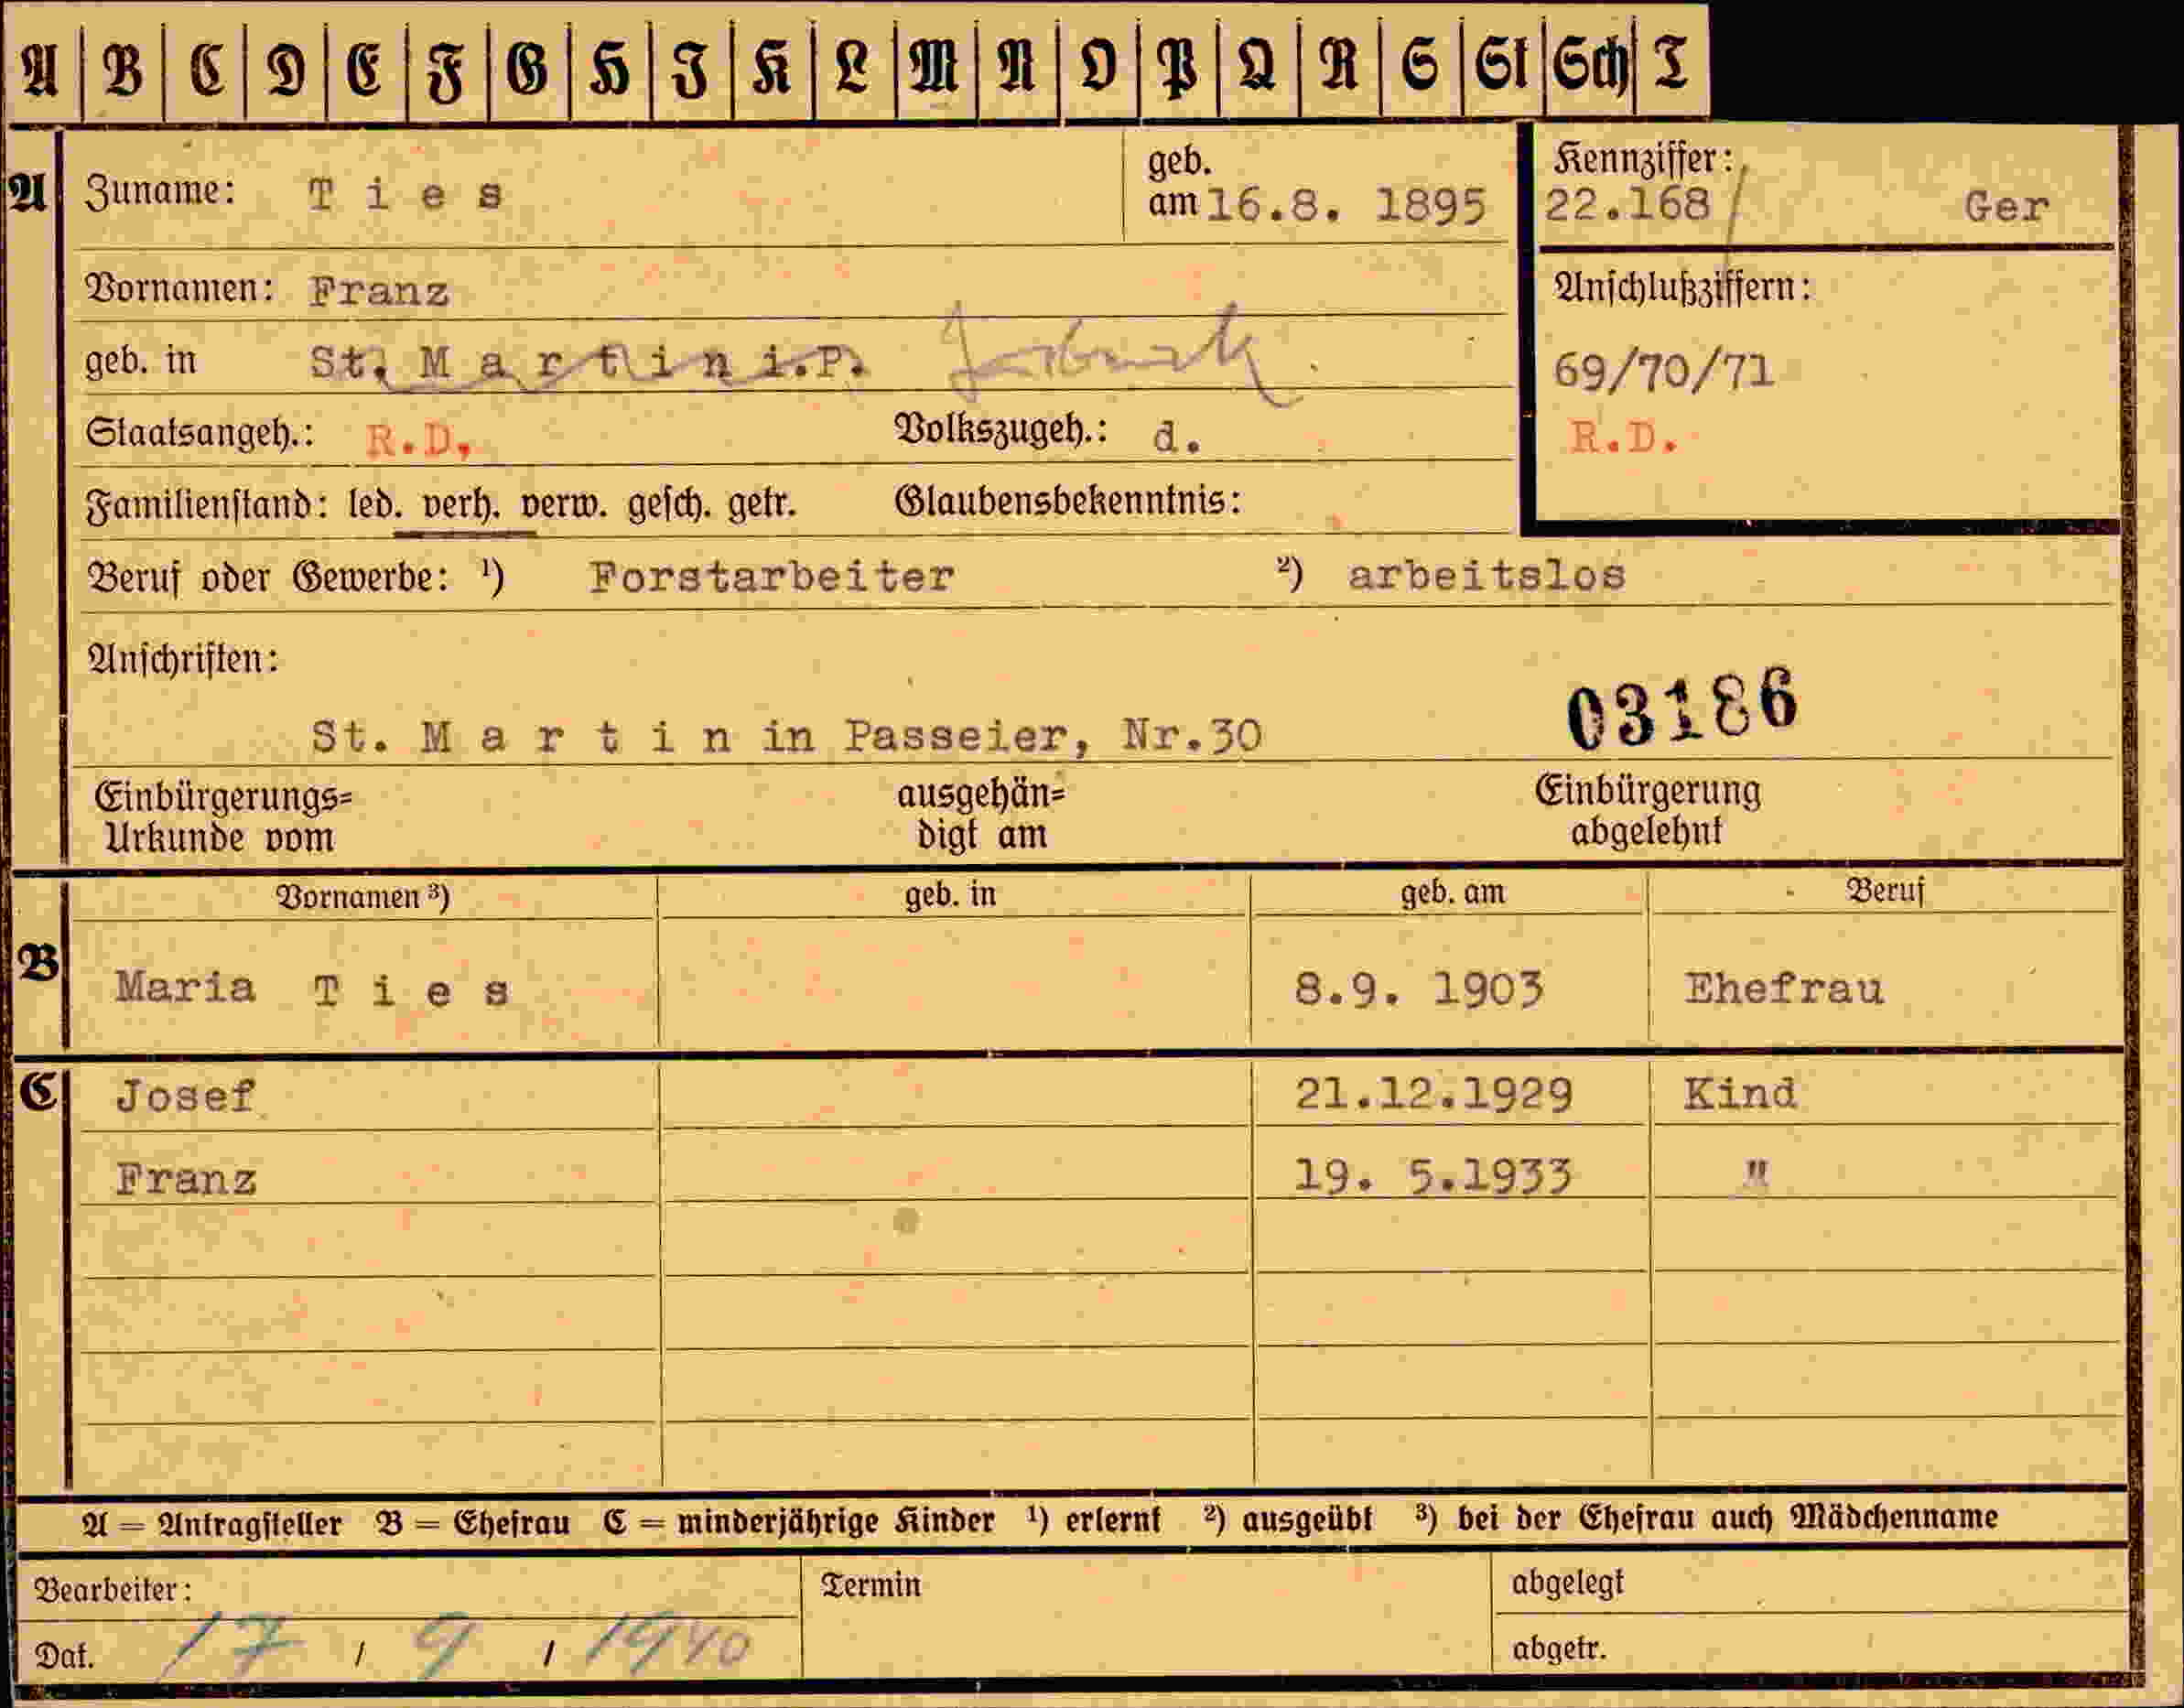 A B C D E F G H J K L M N O P Q R S St Sch T
A Zuname: T i e s geb. am 16.8. 1895 Kennziffer: 22.168 / Ger
Vornamen: Franz Anschlußziffern:
geb. in St. M a r t i n i.P. 69/70/71
Staatsangeh.: R.D. Volkszugeh.: d. R.D.
Familienstand: led. verh. verw. gesch. getr. Glaubensbekenntnis:
Beruf oder Gewerbe: ¹) Forstarbeiter ²) arbeitslos
Anschriften:
03186
St. M a r t i n in Passeier, Nr.30
Einbürgerungs= ausgehän= Einbürgerung
Urkunde vom digt am abgelehnt
Vornamen ³) geb. in geb. am Beruf
B Maria T i e s 8.9. 1903 Ehefrau
C Josef 21.12.1929 Kind
Franz 19. 5.1933 "
A = Antragsteller B = Ehefrau C = minderjährige Kinder ¹) erlernt ²) ausgeübt ³) bei der Ehefrau auch Mädchenname
Bearbeiter: Termin abgelegt
Dat. 17 / 9 / 1940 abgetr.